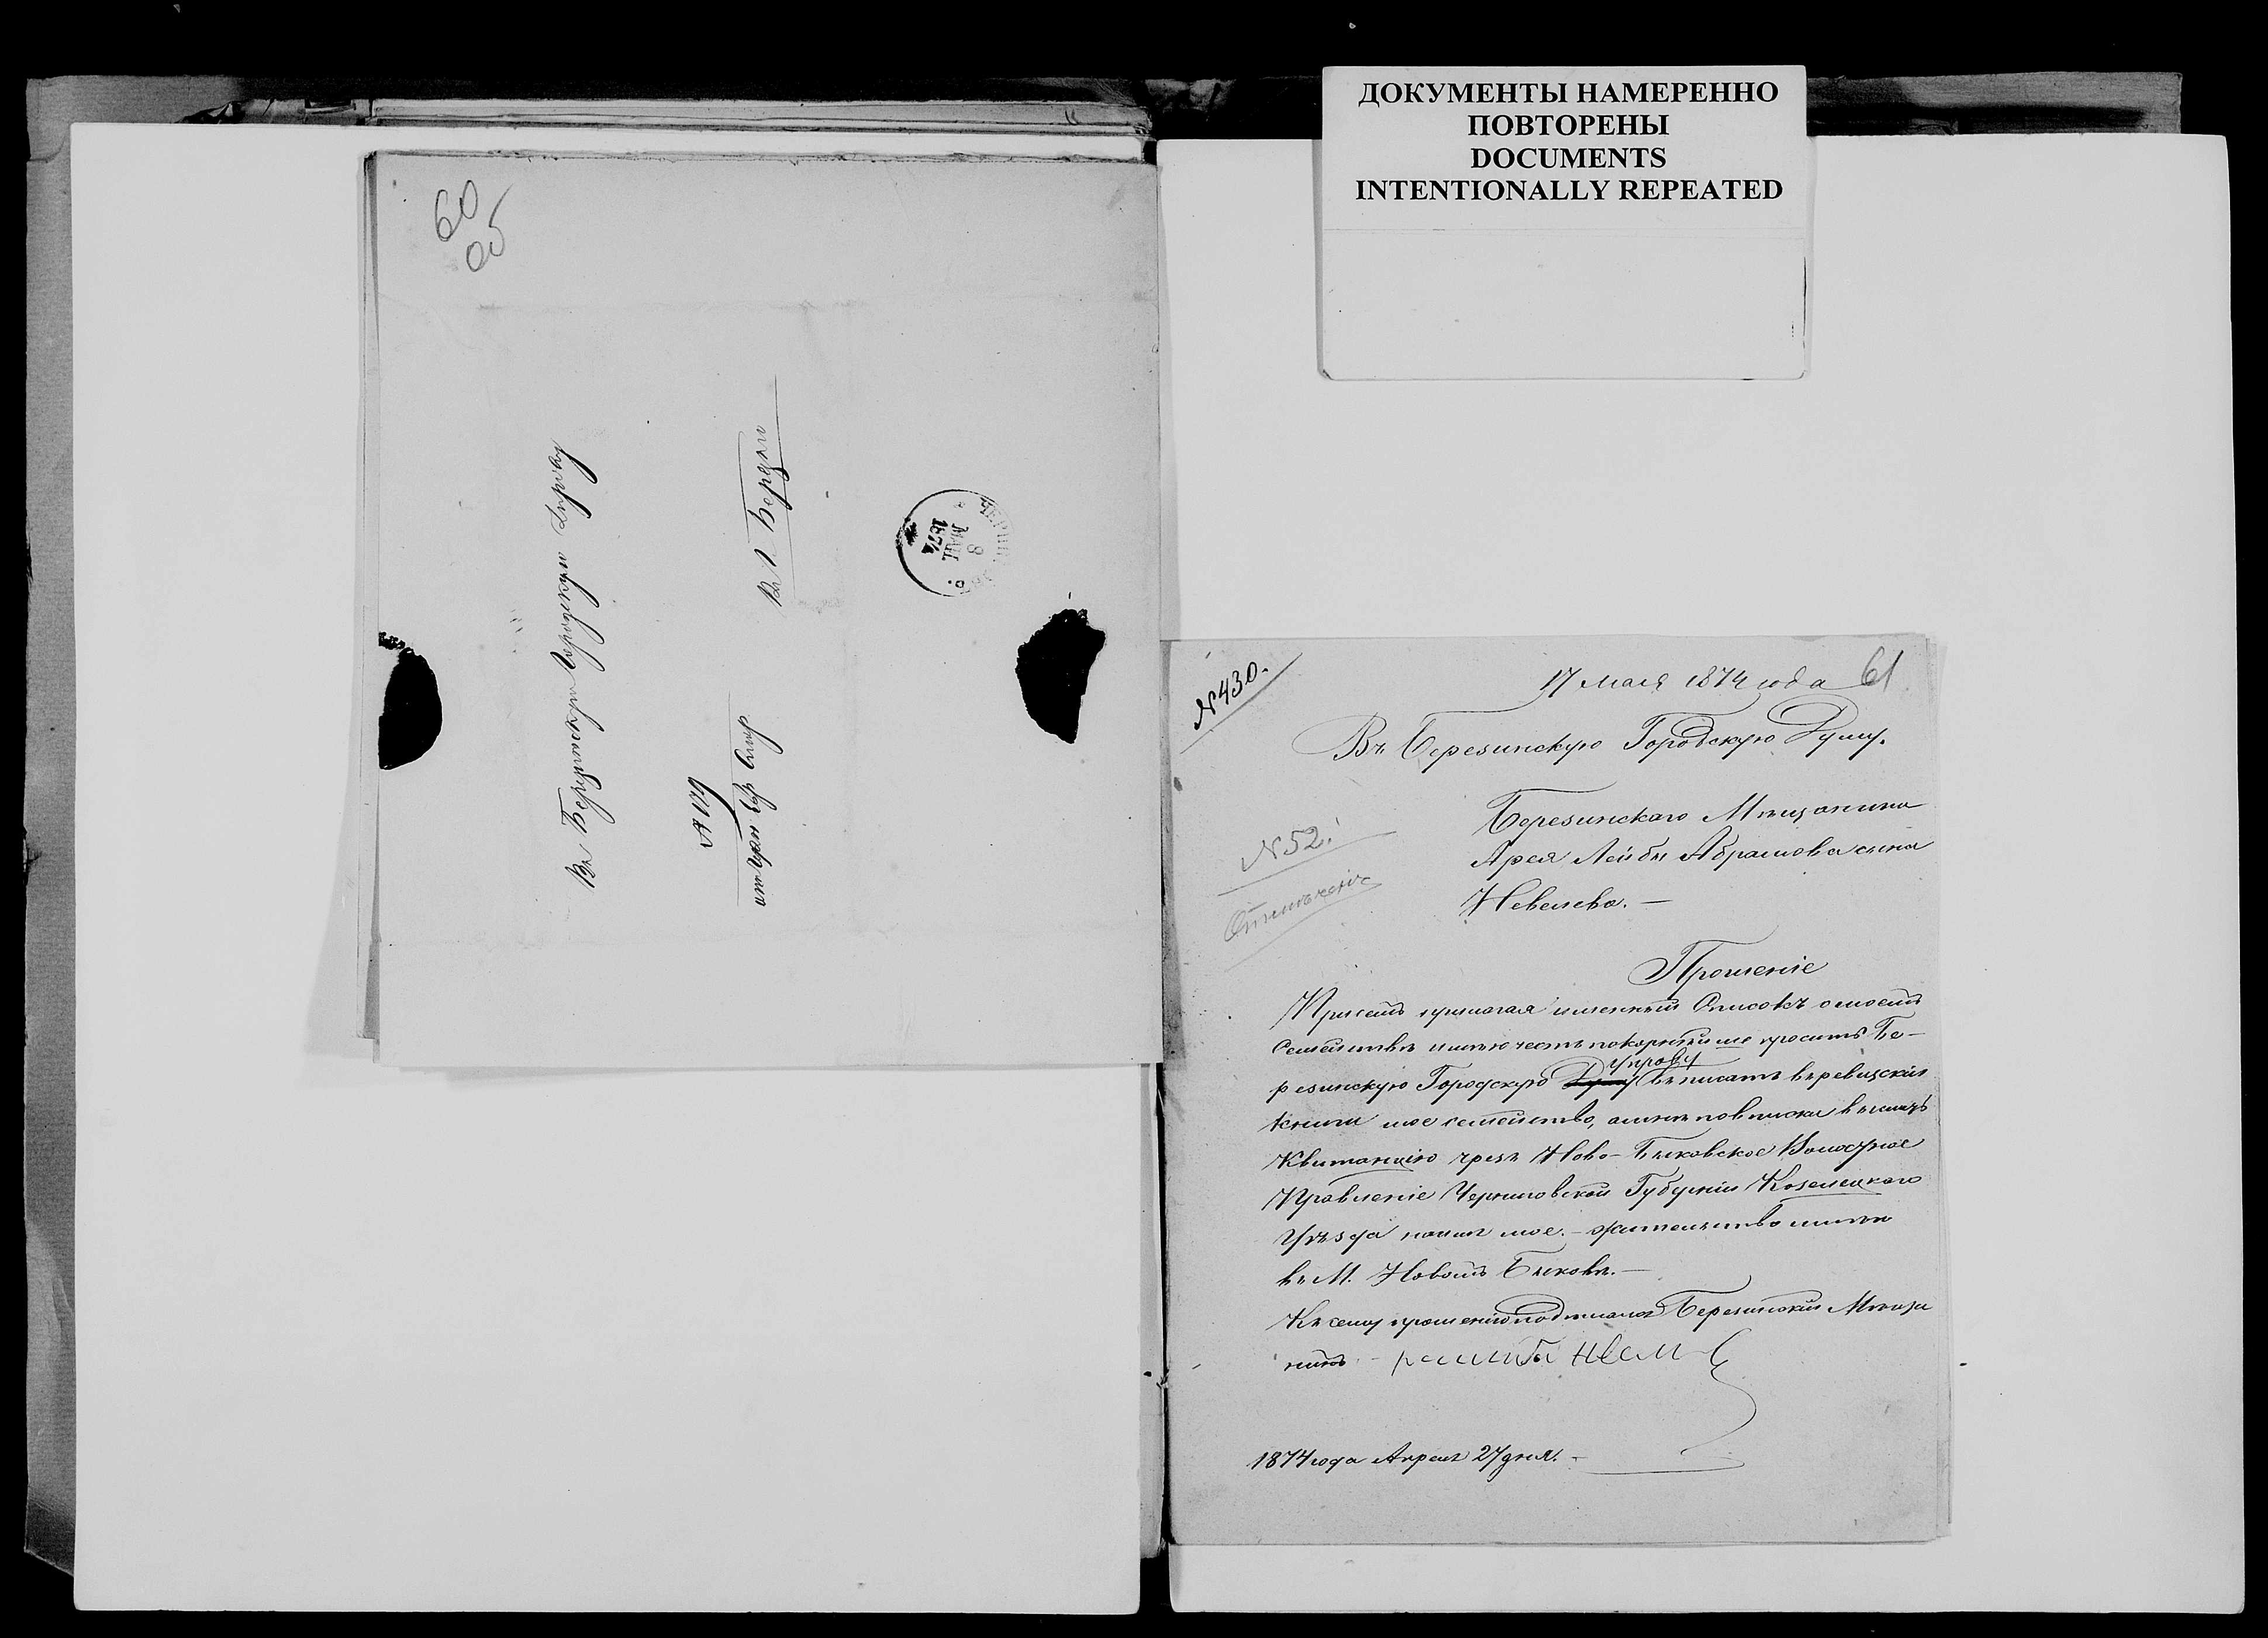 ДОКУМЕНТЫ НАМЕРЕННО
ПОВТОРЕНЫ
DOCUMENTS
INTENTIONALLY REPEATED
60
об
Въ Березинскую Городскую Управу
въ г. Березну
№ 179
8
МАЯ
1874
61
17 мая 1874 года
№ 430.
Въ Березинскую Городскую Думу.
№ 52.
Березинскаго Мѣщанина
Арея Лейбы Абрамова сына
Невелева. —
Прошеніе
При семъ прилагая именный Списокъ о моемъ
Семействѣ имѣю честь покорнѣйше просить Бе-
Управу
резинскую Городскую Думу вписать въ ревизскія
книги мое семейство,
Квитанцію чрезъ Ново-Быковское Волостное
Правленіе Черниговской Губерніи Козелецкаго
Уѣзда мое. - жительство имѣю
въ М. Новомъ Быковѣ. —
Къ сему прошенію подписался Березинскій Мѣща
нинъ
1874 года Апреля 27 дня. -